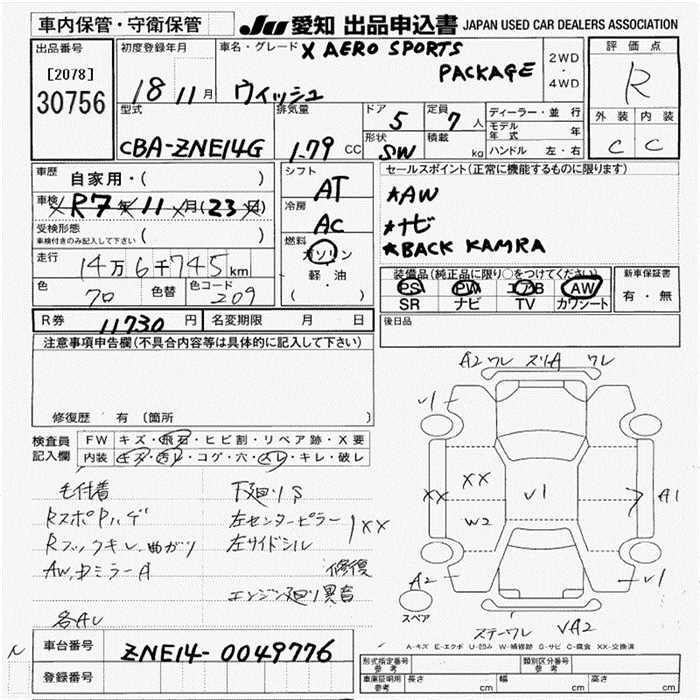 車内保管・守衛保管
JU 愛知 出品申込書 JAPAN USED CAR DEALERS ASSOCIATION
出品番号
[2078]
30756
初度登録年月
18 11月
車名・グレード X AERO SPORTS
PACKAGE
ウィッシュ
2WD
・
4WD
評価点
R
外装 内装
C C
型式
CBA-ZNE14G
排気量
1.79 CC
ドア 5
定員 7人
形状 SW
積載 kg
ディーラー・並行
モデル年式 年
ハンドル 左・右
車歴 自家用・( )
車検 R7年11月(23日)
受検形態
車検付きのみ記入して下さい ( )
走行 14万6千745km
色 70 色替 色コード 209
シフト AT
冷房 AC
燃料 ガソリン
軽・油
( )
セールスポイント(正常に機能するものに限ります)
*AW
*ナビ
*BACK KAMRA
装備品(純正品に限り○をつけてください)
PS PW エアB AW
SR ナビ TV カワシート
新車保証書
有・無
R券 11730円 名変期限 月 日
後日品
注意事項申告欄(不具合内容等は具体的に記入して下さい)
修復歴 有 (箇所 )
検査員
記入欄
FW キズ・飛石・ヒビ割・リペア跡・X要
内装 キズ・汚レ・コゲ・穴・スレ・キレ・破レ
毛付着
RスポPハゲ
Rフックキレ、曲ガリ
AW、ドミラーA
各AU
下廻りS
左センターピラー
左サイドシル
XX
修復
エンジン廻り異音
A2 ワレ スリA ワレ
V1
XX
XX
W2
V1
A1
A2
V1
スペア
ステーワレ VA2
A-キズ E-エクボ U-凹み W-補修跡 S-サビ C-腐食 XX-交換済
車台番号 ZNE14-0049776
登録番号
形式指定番号
参考
類別区分番号
参考
車庫証明用
参考
長さ cm 幅 cm 高さ cm